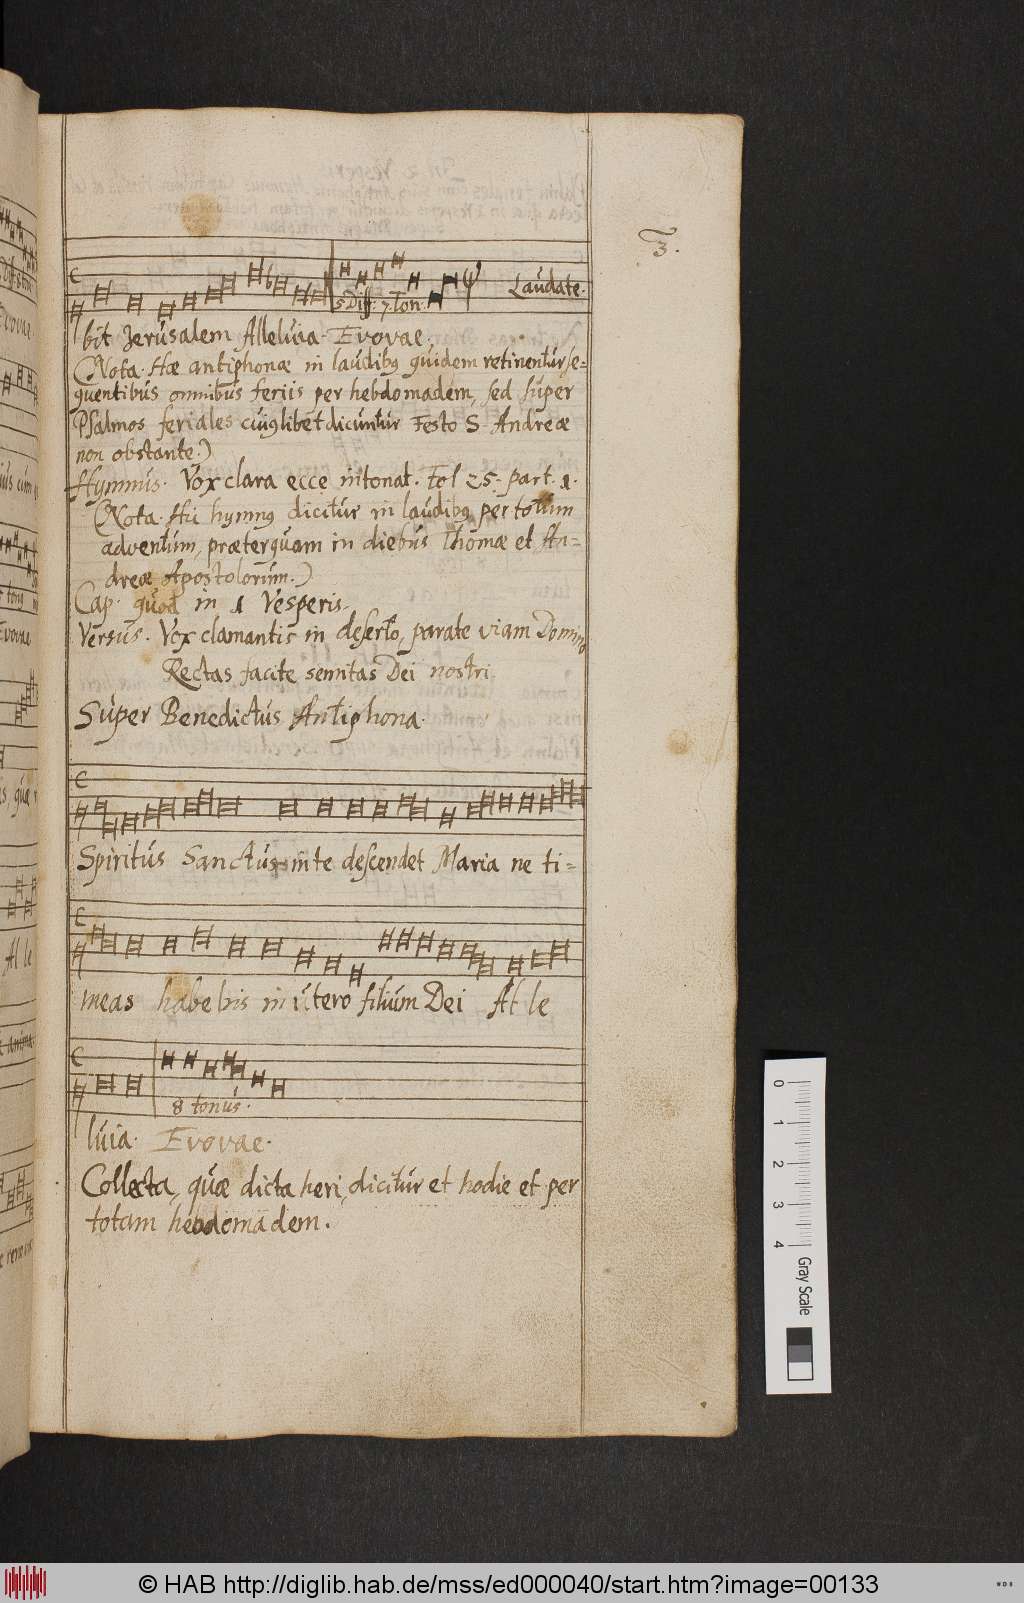 3.
5 Diff: 7. Ton. Laudate.
bit Jerusalem Alleluia. Evovae.
(Nota. Hæ antiphonæ in laudibꝰ quidem retinentur se=
quentibus omnibus feriis per hebdomadem, sed super
Psalmos feriales cuiꝰlibet dicuntur Festo S. Andreæ
non obstante.)
Hymnus. Vox clara ecce intonat. Fol 25. part. 1.
(Nota. Hic hymnꝰ dicitur in laudibꝰ per totum
adventum, præterquam in diebus Thomæ et An=
dreæ Apostolorum.)
Cap. quod in 1 Vesperis.
Versus. Vox clamantis in deserto, parate viam Domino
Rectas facite semitas Dei nostri.
Super Benedictus Antiphona.
Spiritus Sanctus in te descendet Maria ne ti=
meas habebis in utero filium Dei Al le
8 tonus.
luia. Evovae.
Collecta, quæ dicta heri, dicitur et hodie et per
totam hebdomadem.
0 1 2 3 4 Gray Scale
© HAB http://diglib.hab.de/mss/ed000040/start.htm?image=00133